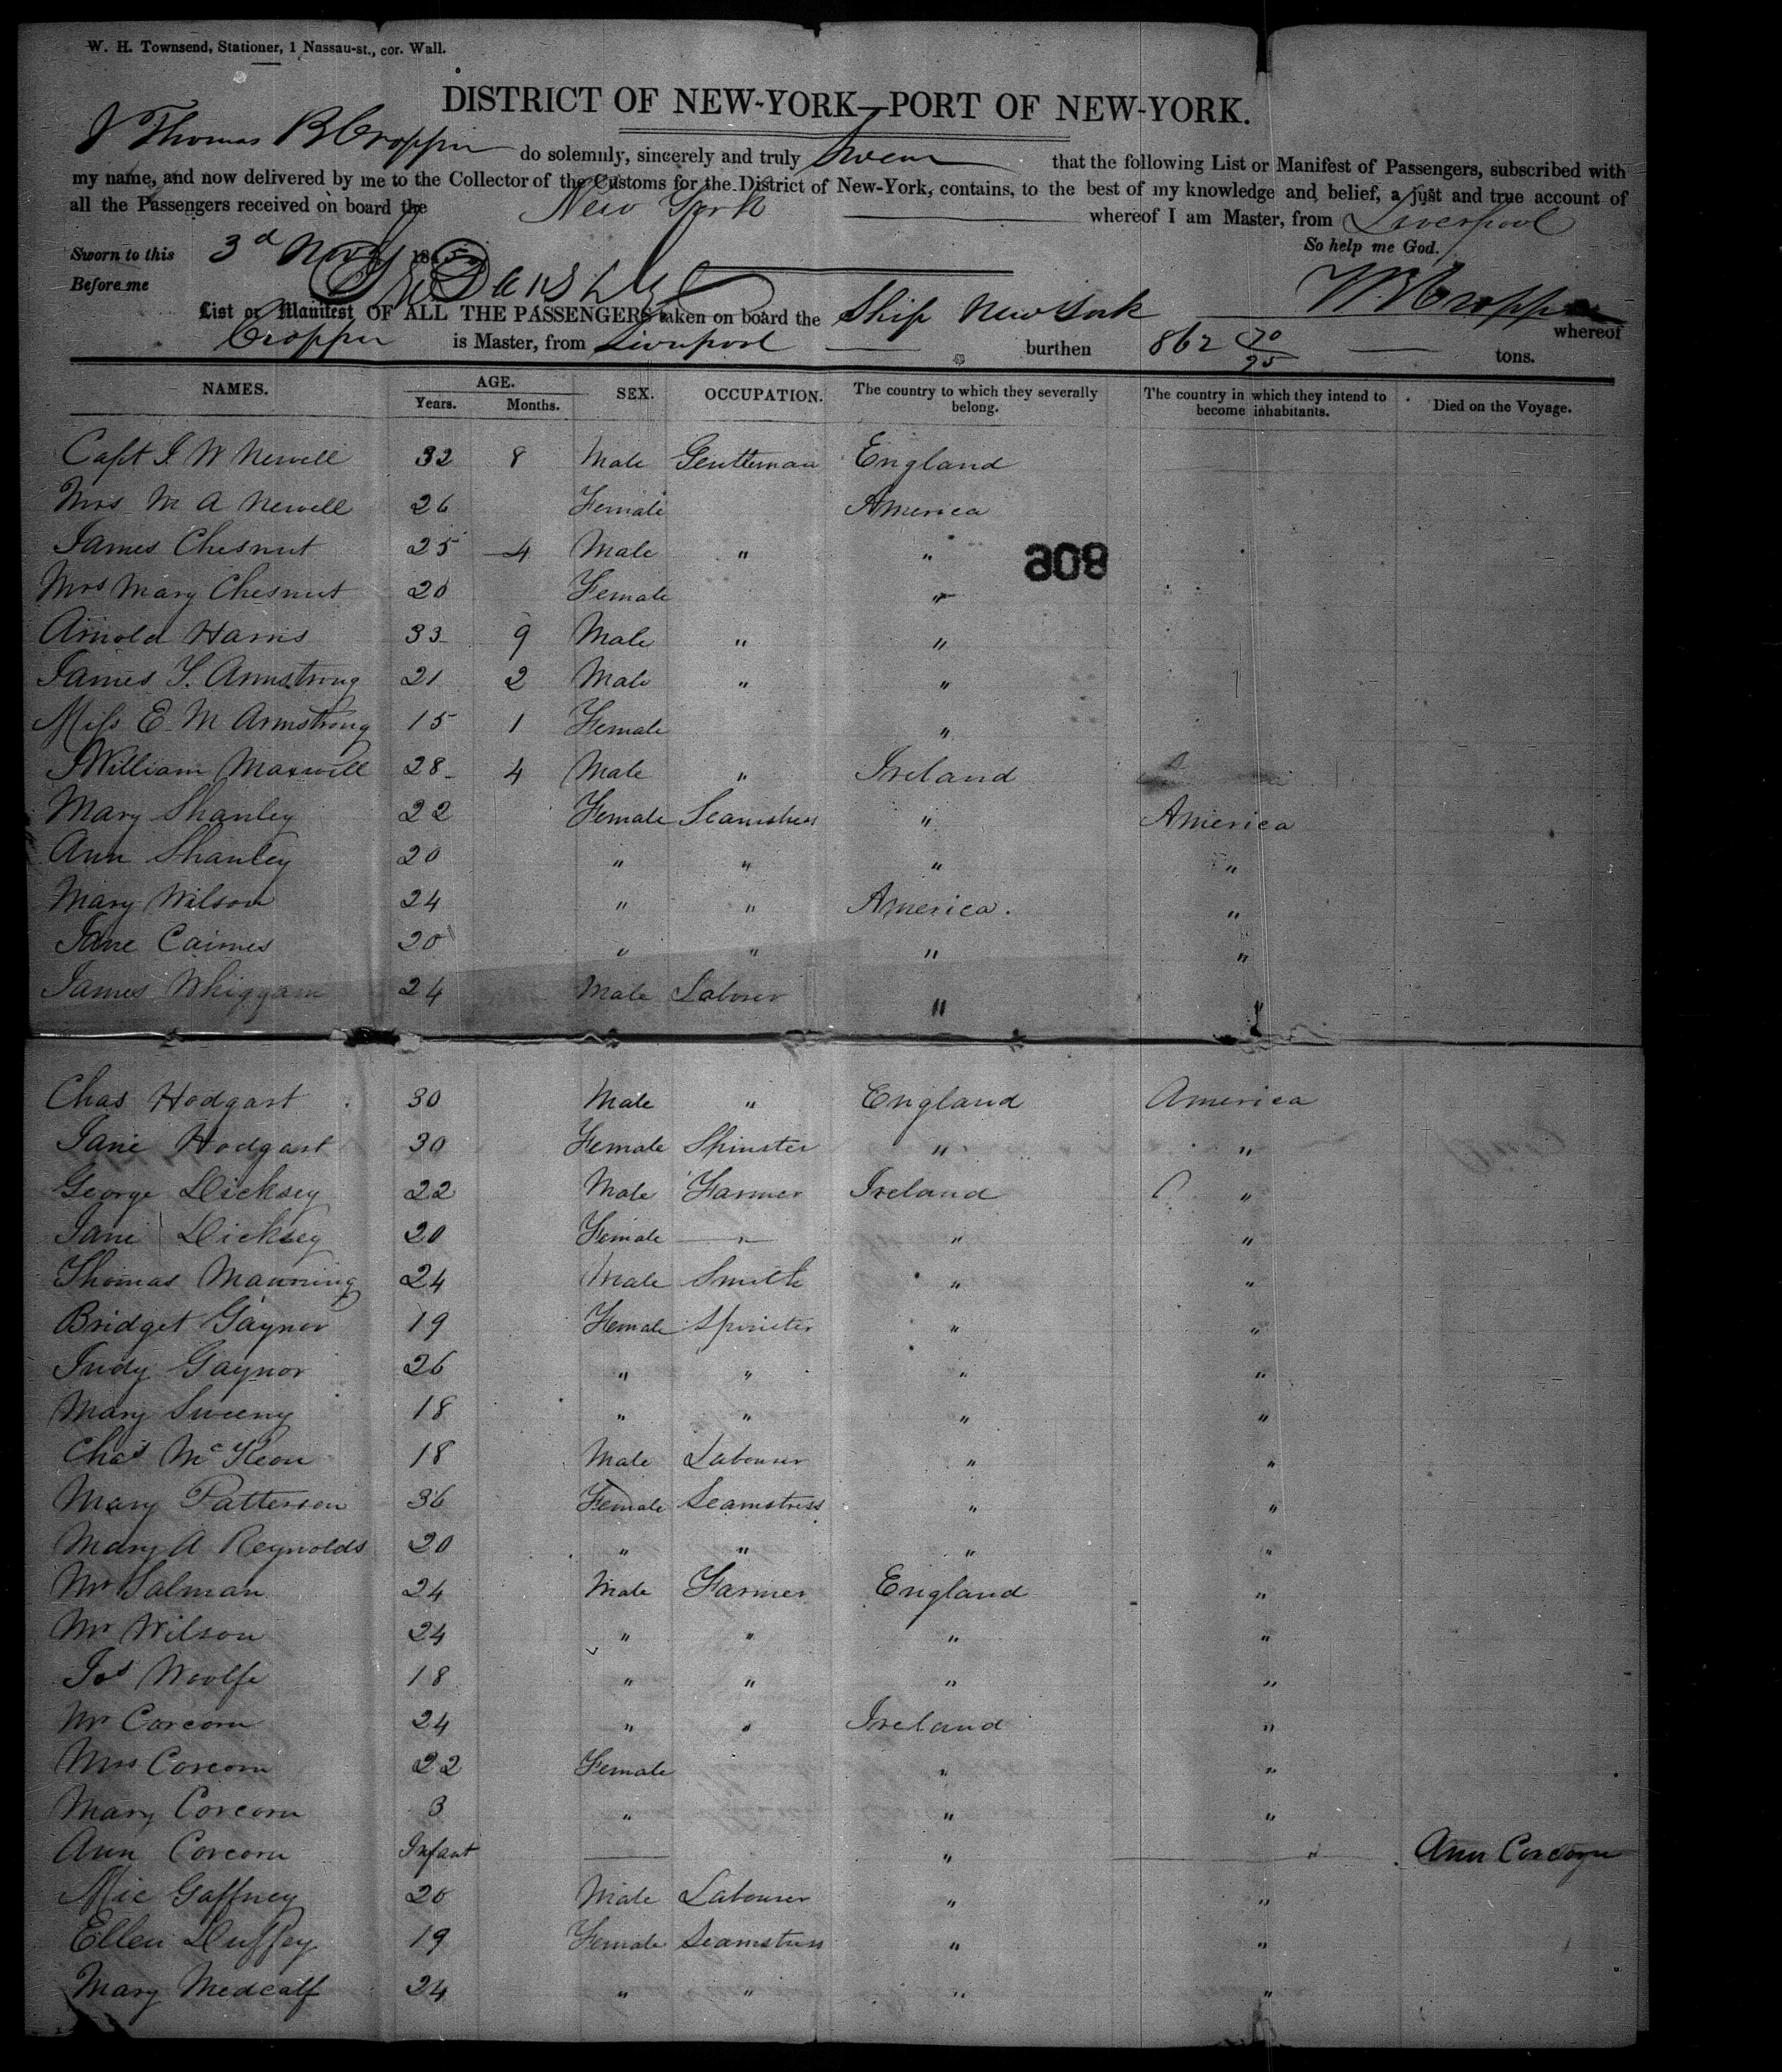 W. H. Townsend, Stationer, 1 Nassau-st., cor. Wall.
DISTRICT OF NEW-YORK—PORT OF NEW-YORK.
I Thomas B Cropper do solemnly, sincerely and truly Swear that the following List or Manifest of Passengers, subscribed with
my name, and now delivered by me to the Collector of the Customs for the District of New-York, contains, to the best of my knowledge and belief, a just and true account of
all the Passengers received on board the New York whereof I am Master, from Liverpool
Sworn to this 3d Novr 184 So help me God.
Before me
List or Manifest OF ALL THE PASSENGERS taken on board the Ship New York whereof
Cropper is Master, from Liverpool burthen 862 70/95 tons.
NAMES. AGE. SEX. OCCUPATION. The country to which they severally belong. The country in which they intend to become inhabitants. Died on the Voyage.
Years. Months.
Capt J. W Newell 32 8 Male Gentleman England
Mrs M A Newell 26 Female America
James Chesnut 25 4 Male " "
808
Mrs Mary Chesnut 20 Female "
Arnold Harris 33 9 Male " "
James S. Armstrong 21 2 Male " "
Miss E M Armstrong 15 1 Female "
William Maxwell 28 4 Male " Ireland
Mary Shanley 22 Female Seamstress " America
Ann Shanley 20 " " " "
Mary Wilson 24 " " America. "
Jane Caimes 20 " " " "
James Whiggam 24 Male Labourer " "
Chas Hodgart 30 Male " England America
Jane Hodgart 30 Female Spinster " "
George Dicksey 22 Male Farmer Ireland "
Jane Dicksey 20 Female " " "
Thomas Manning 24 Male Smith " "
Bridget Gaynor 19 Female Spinster " "
Judy Gaynor 26 " " " "
Mary Sweeny 18 " " " "
Chas McKeon 18 Male Labourer " "
Mary Patterson 36 Female Seamstress " "
Mary A Reynolds 20 " " " "
Mr Salman 24 Male Farmer England "
Mr Wilson 24 " " " "
Jos Woolfe 18 " " " "
Mr Corcorn 24 " " Ireland "
Mrs Corcorn 22 Female " "
Mary Corcorn 3 " " "
Ann Corcorn Infant " " Ann Corcorn
Mic Gaffney 20 Male Labourer " "
Ellen Duffey 19 Female Seamstress " "
Mary Medcalf 24 " " " "